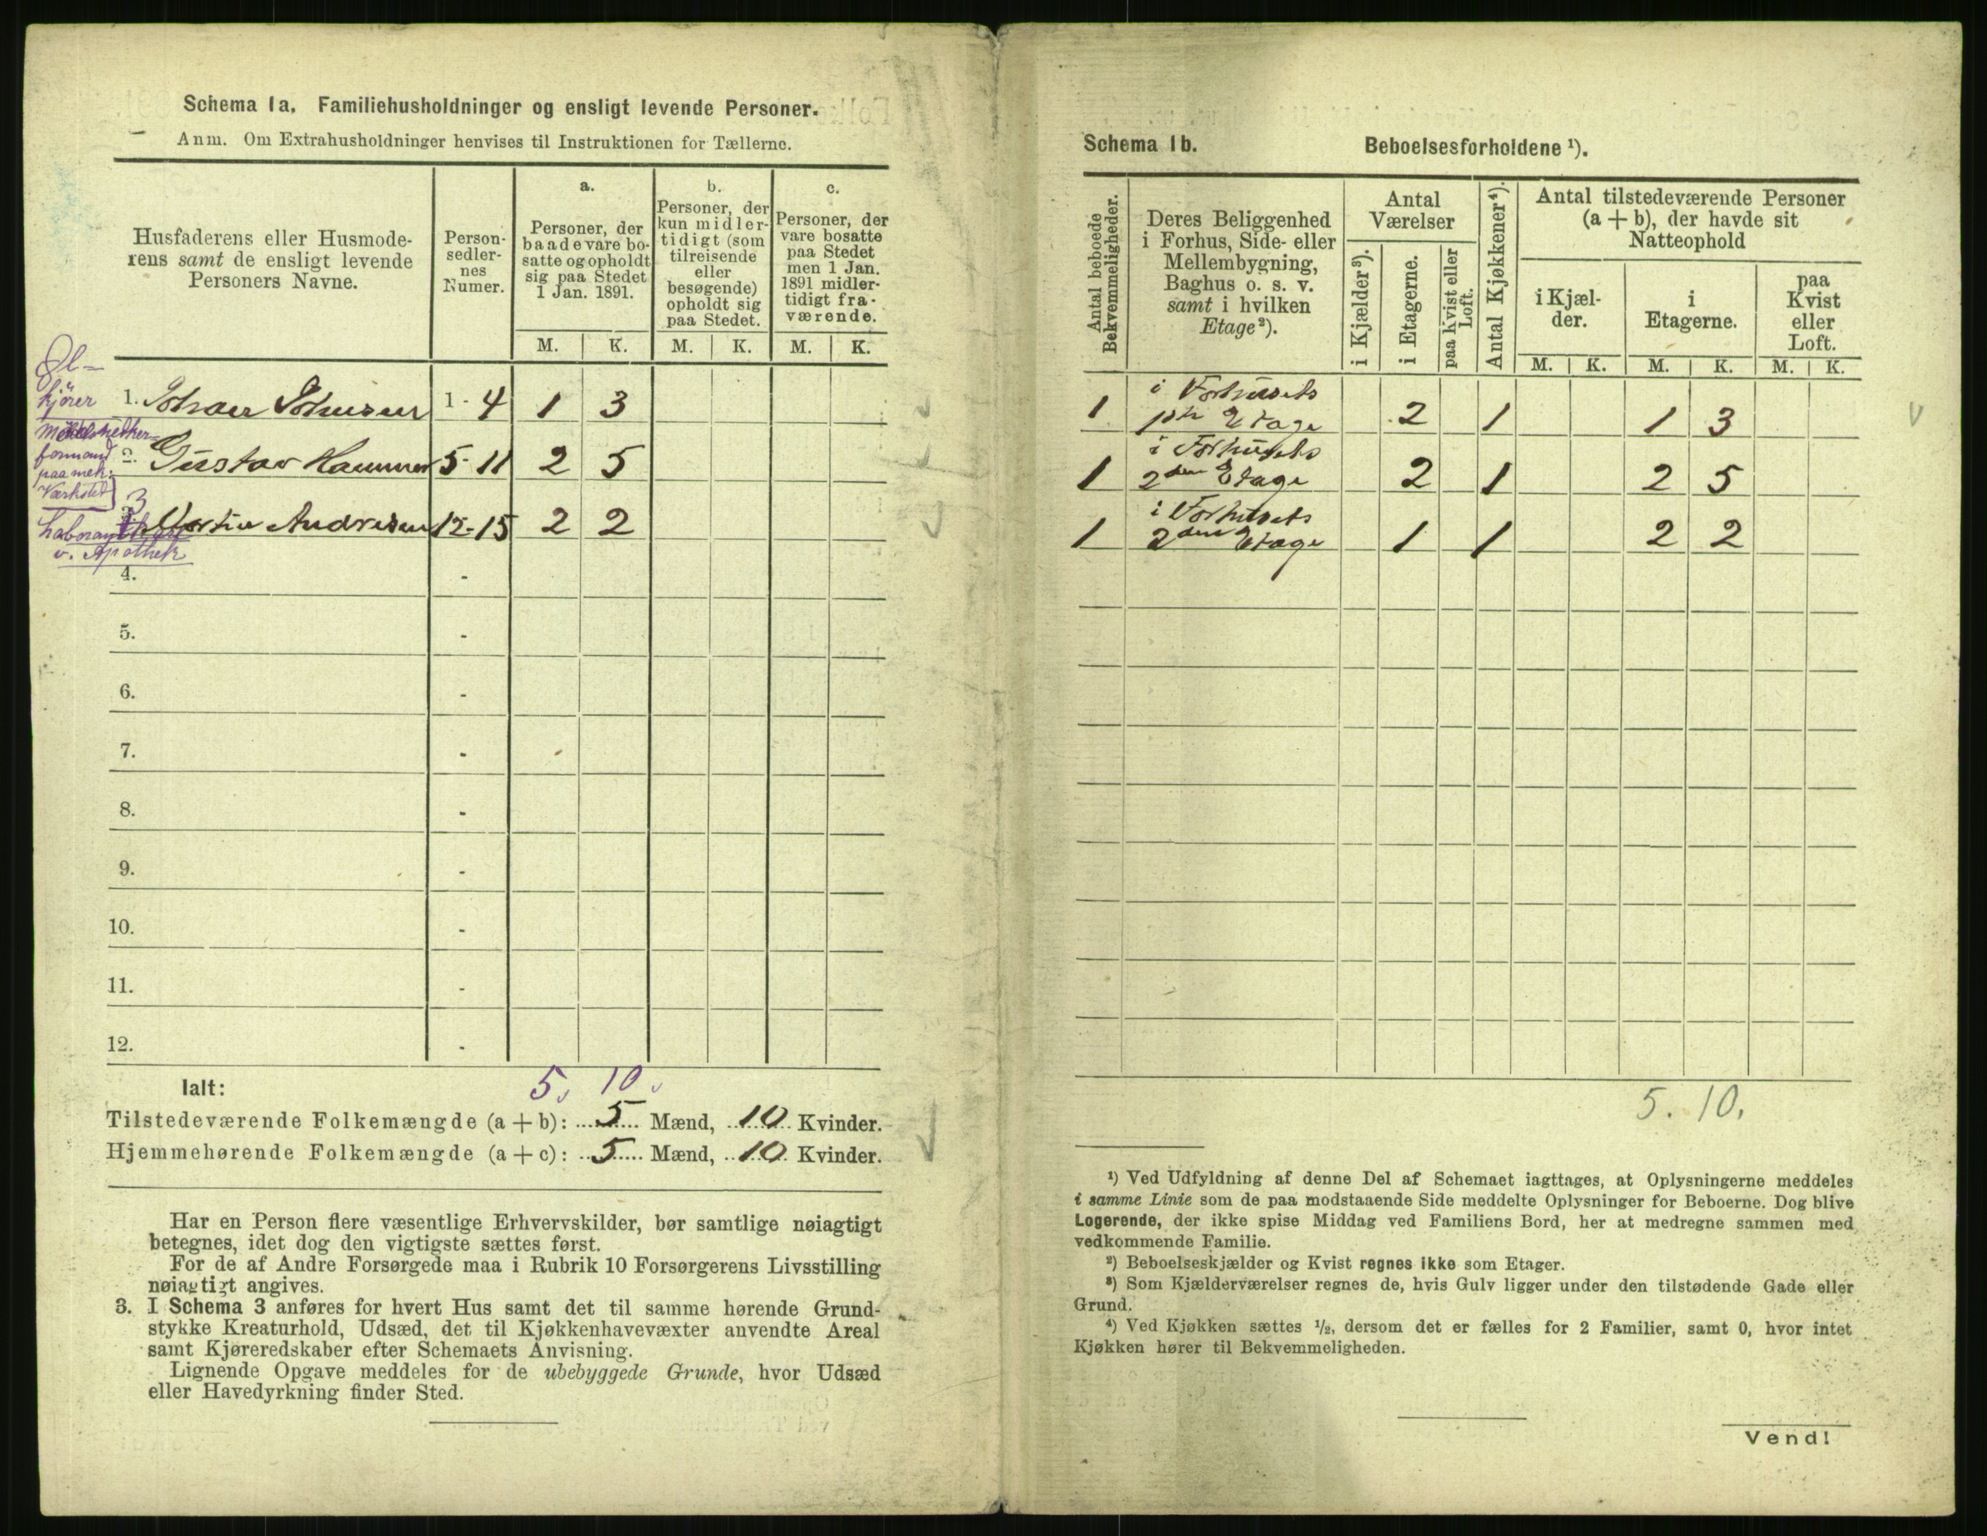 Schema 1a. Familiehusholdninger og ensligt levende Personer.
Anm. Om Extrahusholdninger henvises til Instruktionen for Tællerne.
Husfaderens eller Husmode-
rens samt de ensligt levende
Personers Navne.
Person-
sedler-
nes
Numer.
a.
Personer, der
baade vare bo-
satte og opholdt
sig paa Stedet
1 Jan. 1891.
b.
Personer, der
kun midler-
tidigt (som
tilreisende
eller
besøgende)
opholdt sig
paa Stedet.
c.
Personer, der
vare bosatte
paa Stedet
men 1 Jan.
1891 midler-
tidigt fra-
værende.
M. K. M. K. M. K.
Øl-
kjører
1. Johan Johnsen 1 - 4 1 3
formand
paa mek.
Værksted
2. Gustav Hammer 5 - 11 2 5
3
Martin Andresen 12 - 15 2 2
v. Apothek
4. -
5. -
6. -
7. -
8. -
9. -
10. -
11. -
12. -
Ialt: 5. 10.
Tilstedeværende Folkemængde (a + b): 5 Mænd, 10 Kvinder.
Hjemmehørende Folkemængde (a + c): 5 Mænd, 10 Kvinder.
Har en Person flere væsentlige Erhvervskilder, bør samtlige nøiagtigt
betegnes, idet dog den vigtigste sættes først.
For de af Andre Forsørgede maa i Rubrik 10 Forsørgerens Livsstilling
nøiagtigt angives.
3. I Schema 3 anføres for hvert Hus samt det til samme hørende Grund-
stykke Kreaturhold, Udsæd, det til Kjøkkenhavevæxter anvendte Areal
samt Kjøreredskaber efter Schemaets Anvisning.
Lignende Opgave meddeles for de ubebyggede Grunde, hvor Udsæd
eller Havedyrkning finder Sted.
Schema 1b. Beboelsesforholdene ¹).
Antal beboede
Bekvemmeligheder.
Deres Beliggenhed
i Forhus, Side- eller
Mellembygning,
Baghus o. s. v.
samt i hvilken
Etage ²).
Antal
Værelser
i Kjælder ³).
i Etagerne.
paa Kvist eller
Loft.
Antal Kjøkkener ⁴).
Antal tilstedeværende Personer
(a + b), der havde sit
Natteophold
i Kjæl-
der.
i
Etagerne.
paa
Kvist
eller
Loft.
M. K. M. K. M. K.
i Forhusets
1 1ste Etage 2 1 1 3
i Forhusets
1 2den Etage 2 1 2 5
i Forhusets
1 2den Etage 1 1 2 2
5. 10.
¹) Ved Udfyldning af denne Del af Schemaet iagttages, at Oplysningerne meddeles
i samme Linie som de paa modstaaende Side meddelte Oplysninger for Beboerne. Dog blive
Logerende, der ikke spise Middag ved Familiens Bord, her at medregne sammen med
vedkommende Familie.
²) Beboelseskjælder og Kvist regnes ikke som Etager.
³) Som Kjælderværelser regnes de, hvis Gulv ligger under den tilstødende Gade eller
Grund.
⁴) Ved Kjøkken sættes ½, dersom det er fælles for 2 Familier, samt 0, hvor intet
Kjøkken hører til Bekvemmeligheden.
Vend!